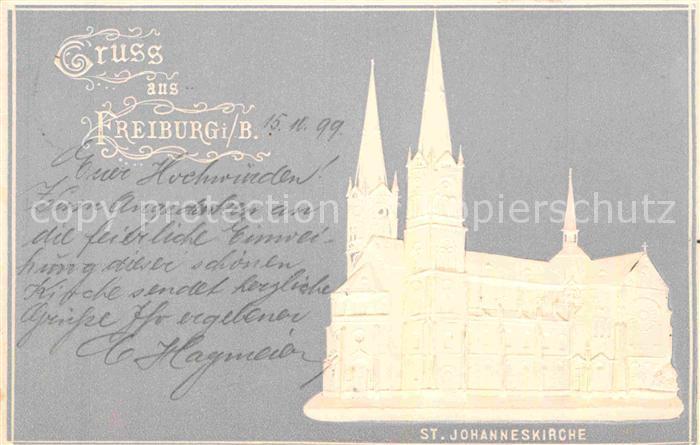 Gruss
aus
FREIBURG i/B.
15. 11. 99.
Euer Hochwürden!
Zum Andenken an
die feierliche Einwei-
hung dieser schönen
Kirche sendet herzliche
Grüße Ihr ergebener
C Hagmeier
copy protection Kopierschutz
ST. JOHANNESKIRCHE